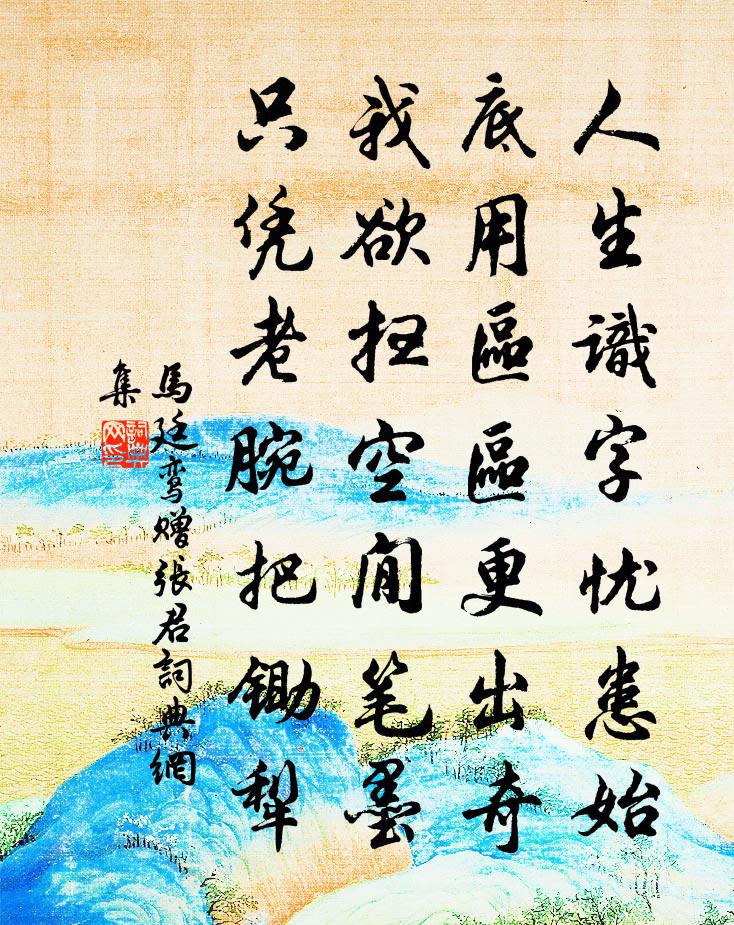 人生識字忧患始
底用區區更出奇
我欲扫空閒笔墨
只凭老腕把锄犁
馬廷鸾赠張君詞典網
集